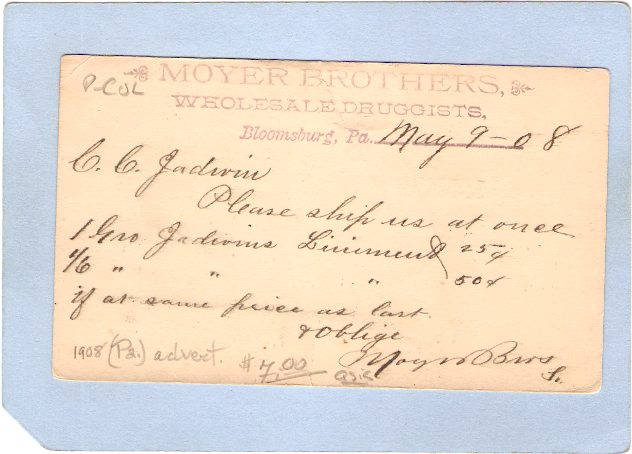 P-COL
MOYER BROTHERS,
WHOLESALE DRUGGISTS,
Bloomsburg, Pa. May 9-08
C. C. Jadwin
Please ship us at once
1 Gro Jadwins Liniment 25¢
1/6 " " " 50¢
if at same price as last.
& Oblige
Moyer Bros
1908 (Pa.) advert. $7.00